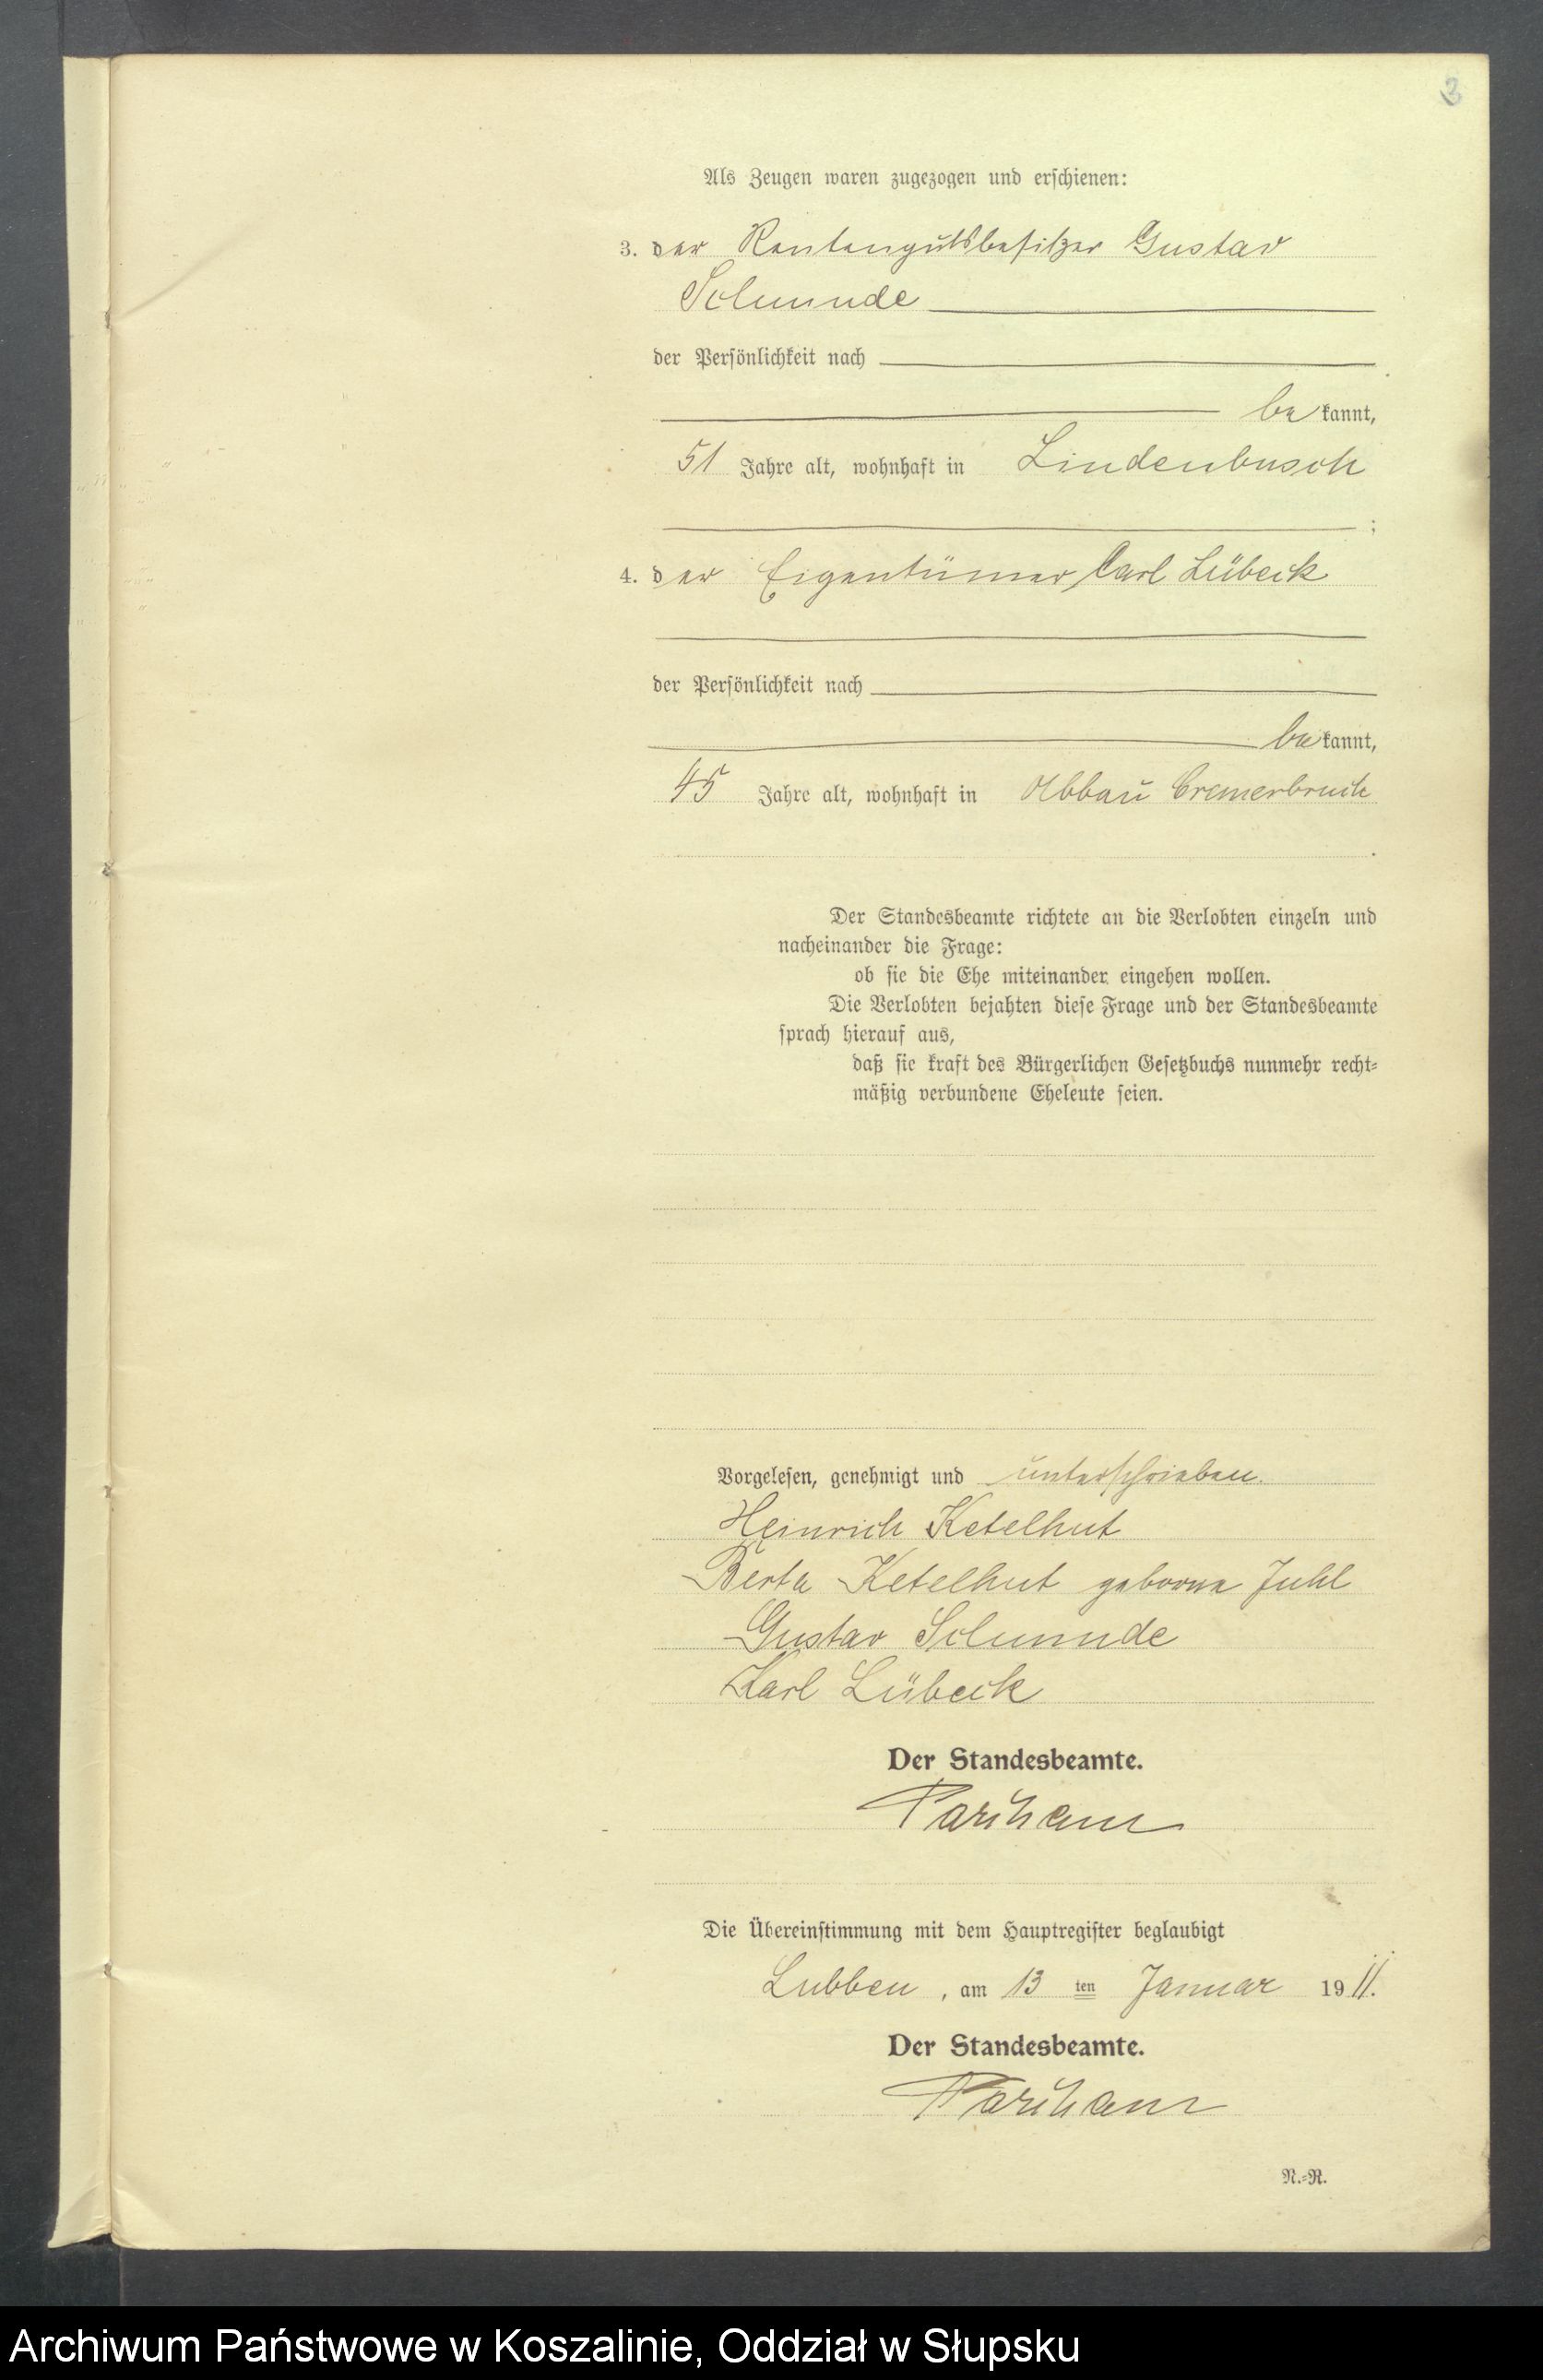 3
Als Zeugen waren zugezogen und erschienen:
3. der Rentengutsbesitzer Gustav
Schmude
der Persönlichkeit nach
be kannt,
51 Jahre alt, wohnhaft in Lindenbusch
;
4. der Eigentümer Carl Lübeck
der Persönlichkeit nach
be kannt,
45 Jahre alt, wohnhaft in Abbau Cremerbruch
.
Der Standesbeamte richtete an die Verlobten einzeln und
nacheinander die Frage:
ob sie die Ehe miteinander eingehen wollen.
Die Verlobten bejahten diese Frage und der Standesbeamte
sprach hierauf aus,
daß sie kraft des Bürgerlichen Gesetzbuchs nunmehr recht-
mäßig verbundene Eheleute seien.
Vorgelesen, genehmigt und unterschrieben.
Heinrich Ketelhut
Berta Ketelhut geborne Juhl
Gustav Schmude
Karl Lübeck
Der Standesbeamte.
Die Übereinstimmung mit dem Hauptregister beglaubigt
Lubben, am 13 ten Januar 1911.
Der Standesbeamte.
N.-R.
Archiwum Państwowe w Koszalinie, Oddział w Słupsku